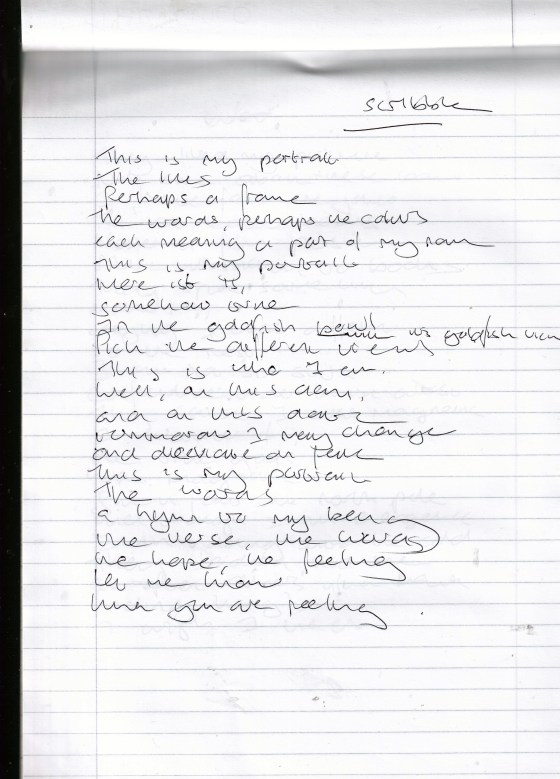 scribble
This is my portrait
The lines
Perhaps a frame
The words, perhaps the colours
each meaning a part of my name
This is my portrait
Here it is,
somehow
In the goldfish bowl the goldfish view
Pick the different views
This is who I am.
Well, on this day,
and on this date
tommorow I may change
and decorate on fate
This is my portrait
The words
a hymn to my being
the verse, the words
the hope, the feeling
let me know
what you are feeling.